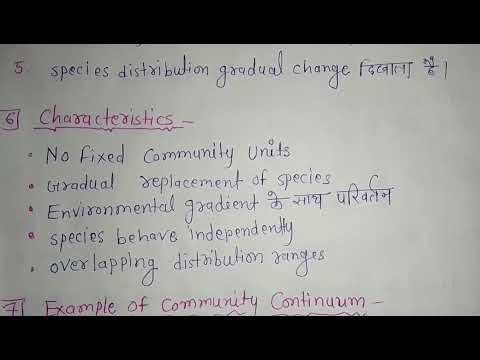 5. species distribution gradual change दिखाता है।
6 Characteristics -
• No Fixed Community Units
• Gradual replacement of species
• Environmental gradient के साथ परिवर्तन
• species behave independently
• overlapping distribution ranges
7 Example of Community Continuum -